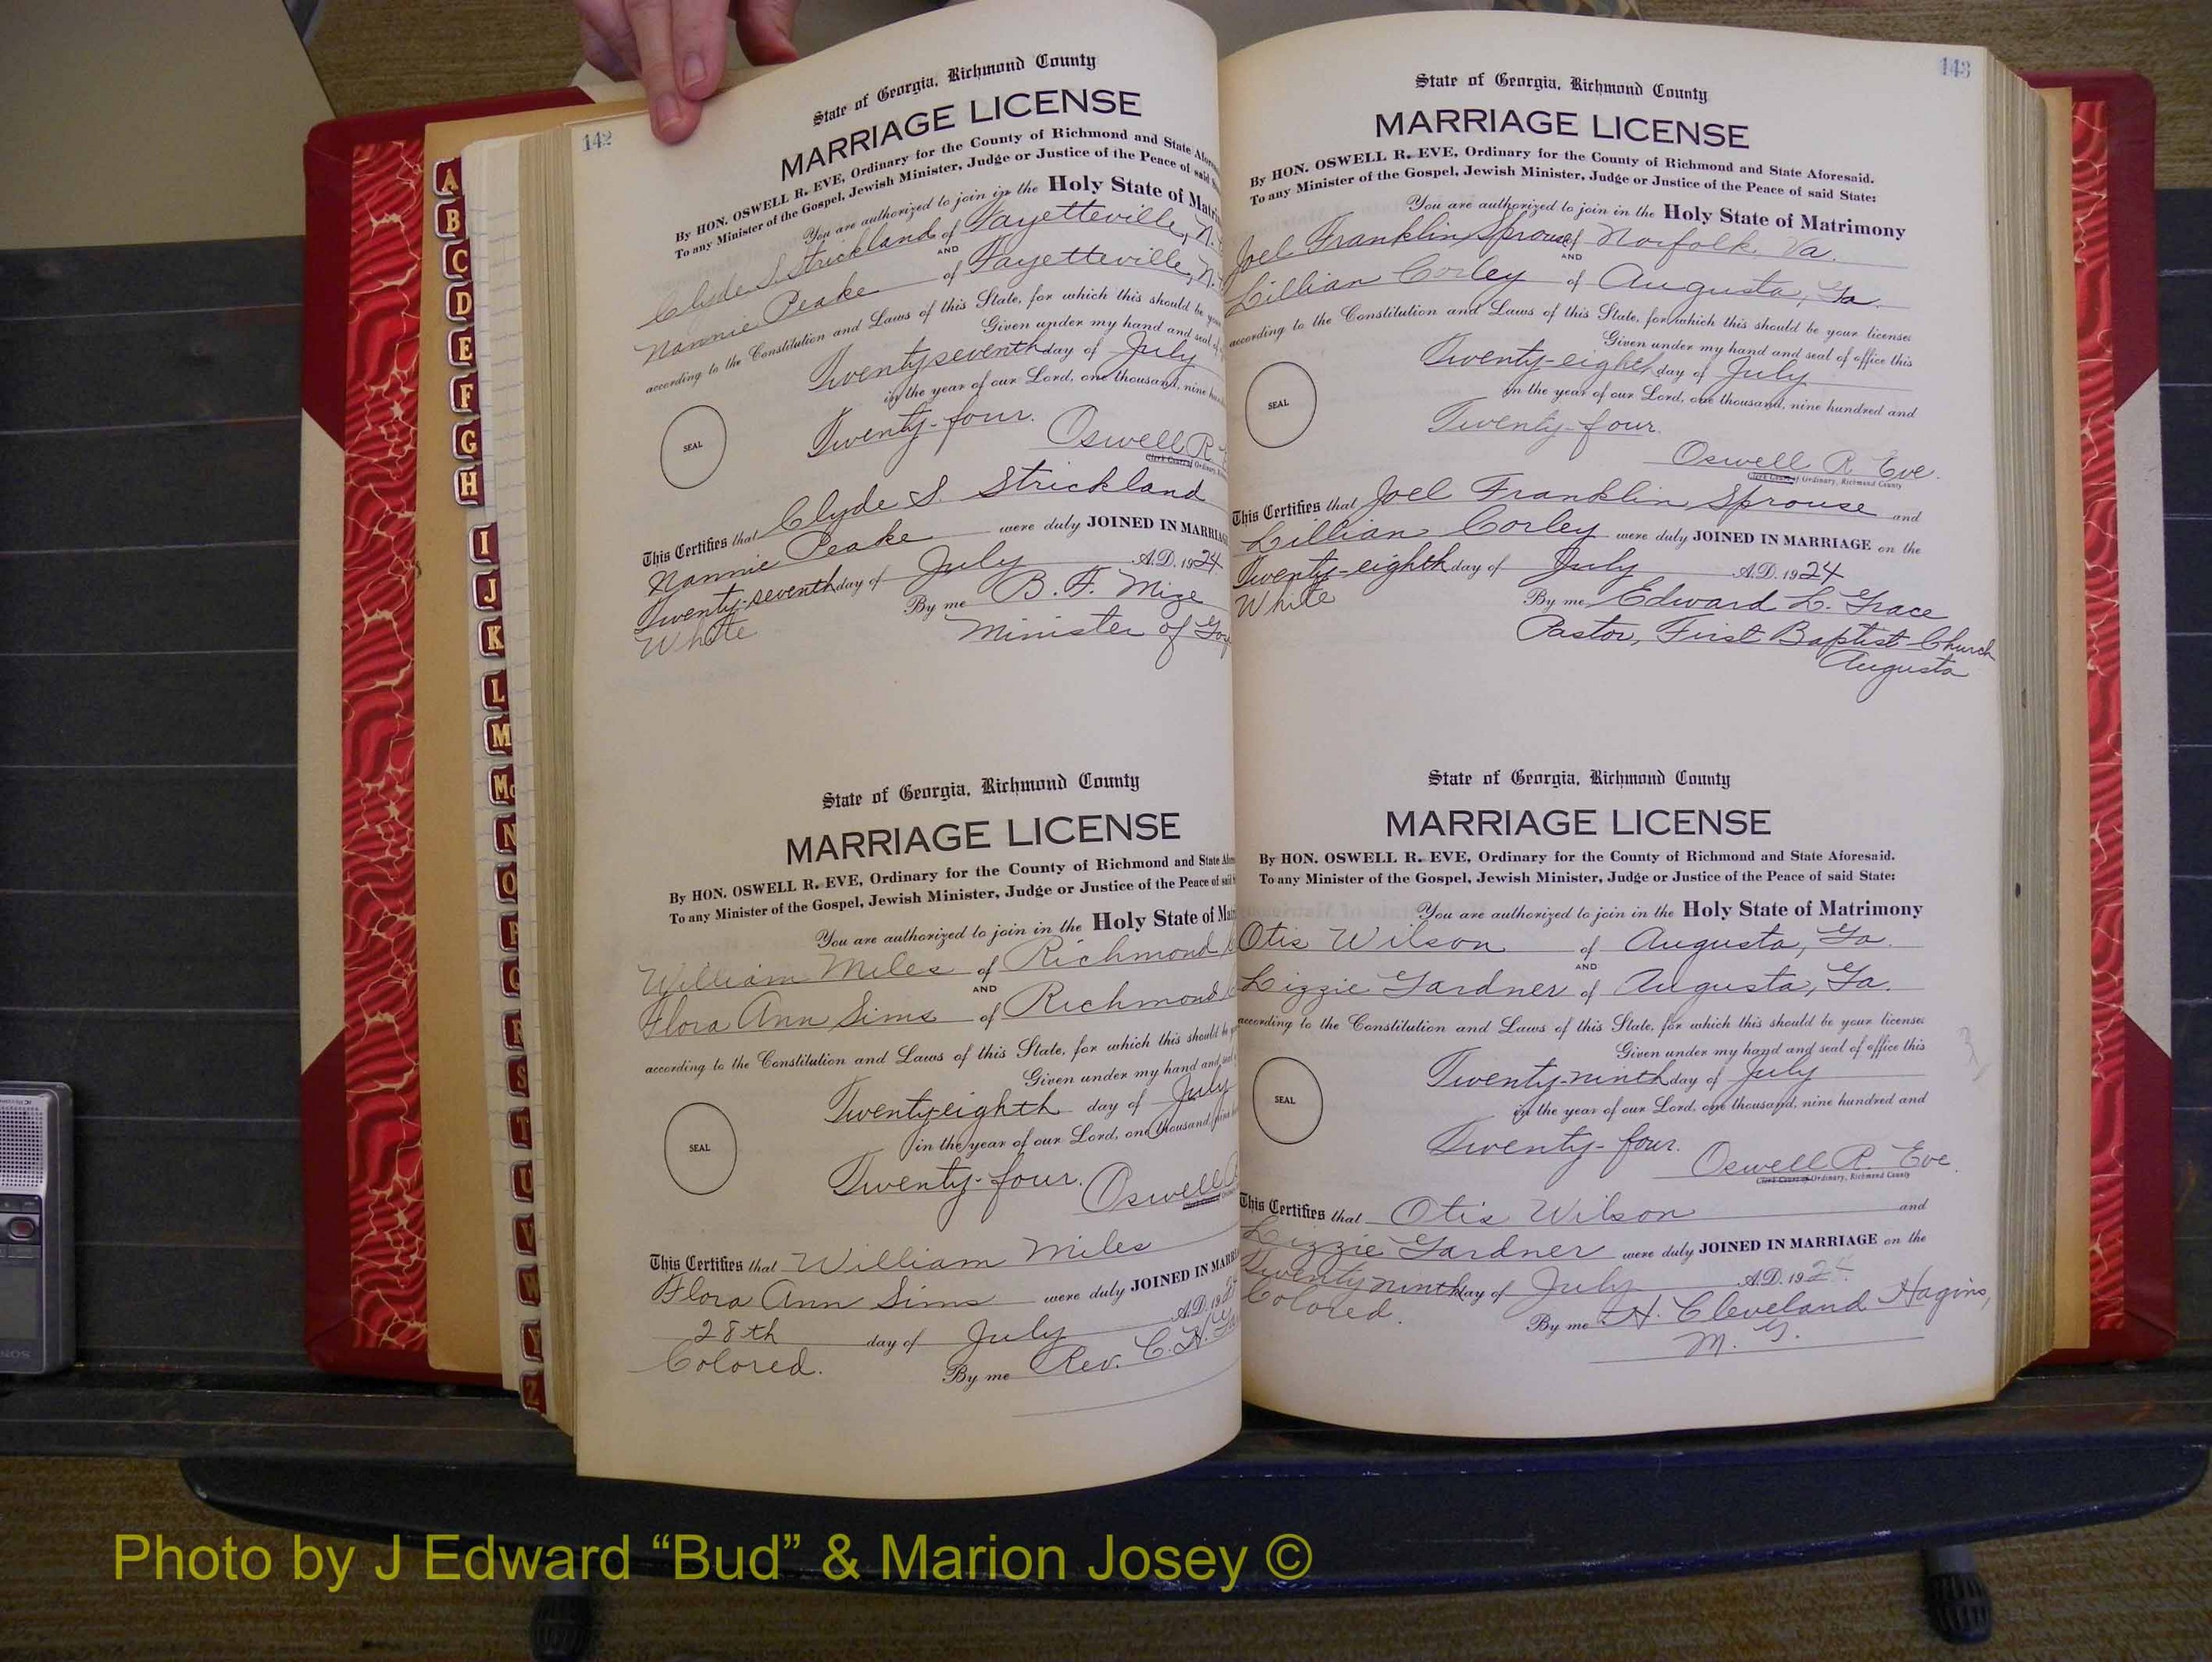 142
State of Georgia, Richmond County
MARRIAGE LICENSE
By HON. OSWELL R. EVE, Ordinary for the County of Richmond and State
To any Minister of the Gospel, Jewish Minister, Judge or Justice of the Peace of said
You are authorized to join in the Holy State of
Clyde S. Strickland of Fayetteville, N.
AND
Nannie Peake of Fayetteville, N.
according to the Constitution and Laws of this State, for which this should be
Given under my hand and seal of
Twenty seventh day of July
in the year of our Lord, one thousand, nine
Twenty-four.
SEAL
Oswell R.
Clerk Court of Ordinary,
This Certifies that Clyde S. Strickland
Nannie Peake were duly JOINED IN
Twenty-seventh day of July A.D. 1924
White By me B. F. Mize
Minister of
State of Georgia, Richmond County
MARRIAGE LICENSE
By HON. OSWELL R. EVE, Ordinary for the County of Richmond and State
To any Minister of the Gospel, Jewish Minister, Judge or Justice of the Peace of said
You are authorized to join in the Holy State of
William Miles of Richmond
AND
Flora Ann Sims of Richmond
according to the Constitution and Laws of this State, for which this should be
Given under my hand and seal
Twenty-eighth day of July
in the year of our Lord, one thousand, nine
Twenty-four.
SEAL
Oswell
This Certifies that William Miles
Flora Ann Sims were duly JOINED IN
28th day of July A.D. 19
Colored. By me Rev. C. H.
143
State of Georgia, Richmond County
MARRIAGE LICENSE
By HON. OSWELL R. EVE, Ordinary for the County of Richmond and State Aforesaid.
To any Minister of the Gospel, Jewish Minister, Judge or Justice of the Peace of said State:
You are authorized to join in the Holy State of Matrimony
Joel Franklin Sprouse of Norfolk, Va.
AND
Lillian Corley of Augusta, Ga.
according to the Constitution and Laws of this State, for which this should be your license
Given under my hand and seal of office this
Twenty-eighth day of July
in the year of our Lord, one thousand, nine hundred and
Twenty-four.
SEAL
Oswell R. Eve.
Clerk Court of Ordinary, Richmond County
This Certifies that Joel Franklin Sprouse and
Lillian Corley were duly JOINED IN MARRIAGE on the
Twenty-eighth day of July A.D. 1924
White By me Edward L. Grace
Pastor, First Baptist Church
Augusta
State of Georgia, Richmond County
MARRIAGE LICENSE
By HON. OSWELL R. EVE, Ordinary for the County of Richmond and State Aforesaid.
To any Minister of the Gospel, Jewish Minister, Judge or Justice of the Peace of said State:
You are authorized to join in the Holy State of Matrimony
Otis Wilson of Augusta, Ga.
AND
Lizzie Gardner of Augusta, Ga.
according to the Constitution and Laws of this State, for which this should be your license
Given under my hand and seal of office this
Twenty-ninth day of July
in the year of our Lord, one thousand, nine hundred and
Twenty-four.
SEAL
Oswell R. Eve.
Clerk Court of Ordinary, Richmond County
This Certifies that Otis Wilson and
Lizzie Gardner were duly JOINED IN MARRIAGE on the
Twenty ninth day of July A.D. 192
Colored. By me H. Cleveland Hagins,
M. G.
A
B
C
D
E
F
G
H
I
J
K
L
M
Mc
N
O
P
Q
R
S
T
U
V
W
Y
Z
Photo by J Edward “Bud” & Marion Josey ©